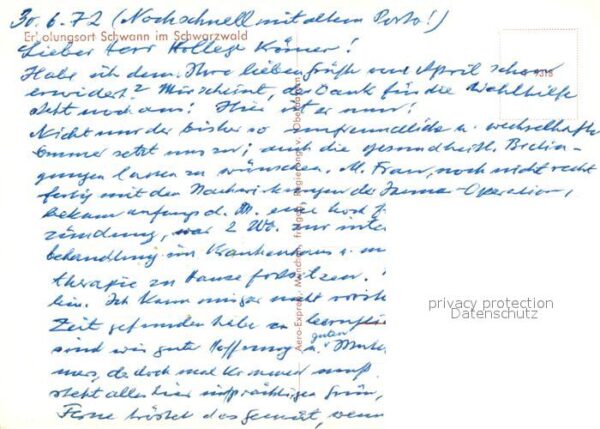 30.6.72 (Noch schnell mit altem Porto!)
Erholungsort Schwann im Schwarzwald
Lieber Herr Kollege Körner!
Habe ich denn Ihre lieben Grüße vom April schon
erwidert? Mir scheint, der Dank für die Wahlhilfe
steht noch aus! Hier ist er nun!
Nicht nur der bisher so unfreundliche u. wechselhafte
Sommer setzt uns zu; auch die gesundheitl. Bedin-
gungen lassen zu wünschen. M. Frau, noch nicht recht
fertig mit den Nachwirkungen der Operation,
bekam anfangs d. M. eine
zündung, war 2 Wo. zur
behandlung im Krankenhaus u. m
therapie zu Hause fortsetzen.
bin. Ich kann nicht
Zeit gefunden habe zu
sind wir guter Hoffnung u. guten
mers, da doch mal kommen muß.
steht alles hier in prächtigem Grün,
Ferne tröstet das Gemüt, wenn
7318
Aero-Express, München, freigeg. Regierung v. Oberbayern
privacy protection
Datenschutz